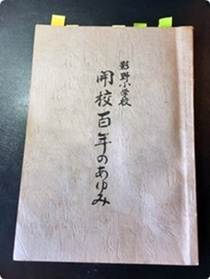 影野小学校
開校百年のあゆみ